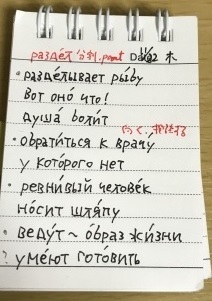 разде́л 分割. part Date 木
• разде́лывает ры́бу
Вот оно́ что!
душа́ боли́т
• обрати́ться к врачу́
у кото́рого нет
• ревни́вый челове́к
но́сит шля́пу
• веду́т ~ о́браз жи́зни
? уме́ют гото́вить